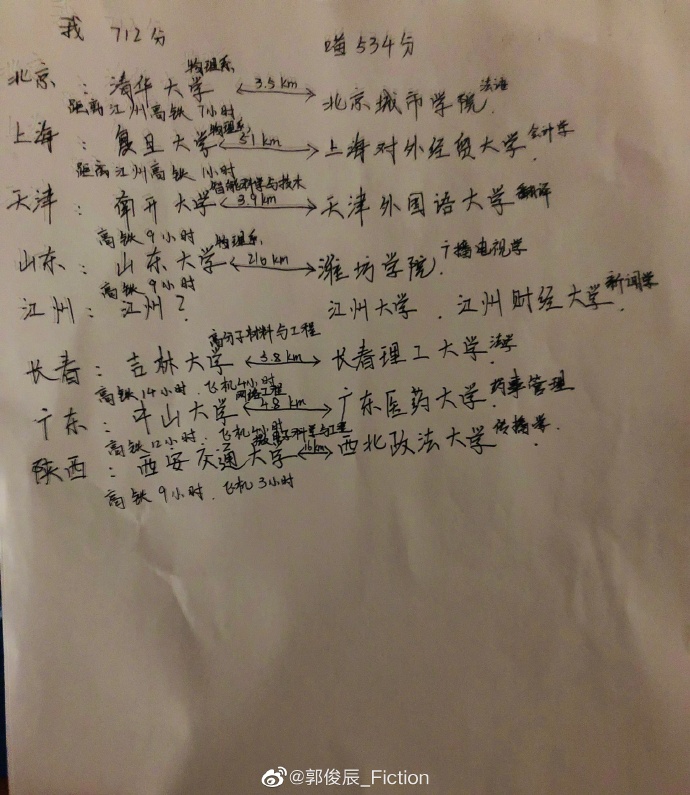 我 712分 喵534分
北京：清华大学 物理系 3.5km 北京城市学院.法语
距离江州高铁7小时
上海：复旦大学 物理系 51km 上海对外经贸大学.会计学
距离江州高铁1小时
天津：南开大学 智能科学与技术 3.9km 天津外国语大学 翻译
高铁9小时
山东：山东大学 物理系 216km 潍坊学院.广播电视学
高铁9小时
江州：江州？ 江州大学.江州财经大学.新闻学
长春：吉林大学 高分子材料与工程 3.8km 长春理工大学.法学
高铁14小时.飞机4小时
广东：中山大学 网络工程 4.8km 广东医药大学.药事管理
高铁12小时.飞机4小时
陕西：西安交通大学 科学与工程 16km 西北政法大学.传播学.
高铁9小时.飞机3小时
@郭俊辰_Fiction